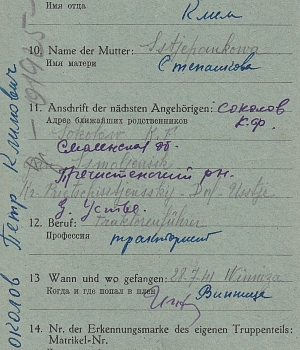 Имя отца
Клим
10. Name der Mutter: Sstjepankowa
Имя матери
Степанкова
11. Anschrift der nächsten Angehörigen: Соколов
Адрес ближайших родственников К.Ф.
Sokolow K. F.
Смоленская об.
Smolensk
Пречистенский рн.
Kr. Pretschisstjensskij - Dof - Usstje
д. Устье.
12. Beruf: Traktorenführer
Профессия
тракторист
13 Wann und wo gefangen: 22.7.41 Winniza
Когда и где попал в плен
Винница
14. Nr. der Erkennungsmarke des eigenen Truppenteils:
Matrikel-Nr.
околов Петр Климович